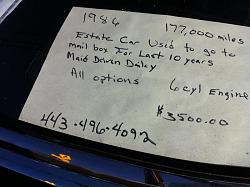 1986 177,000 miles
Estate Car Used to go to
mail box For Last 10 years
Maid Driven Dailey
All options 6 cyl Engine
$3500.00
443-496-4092